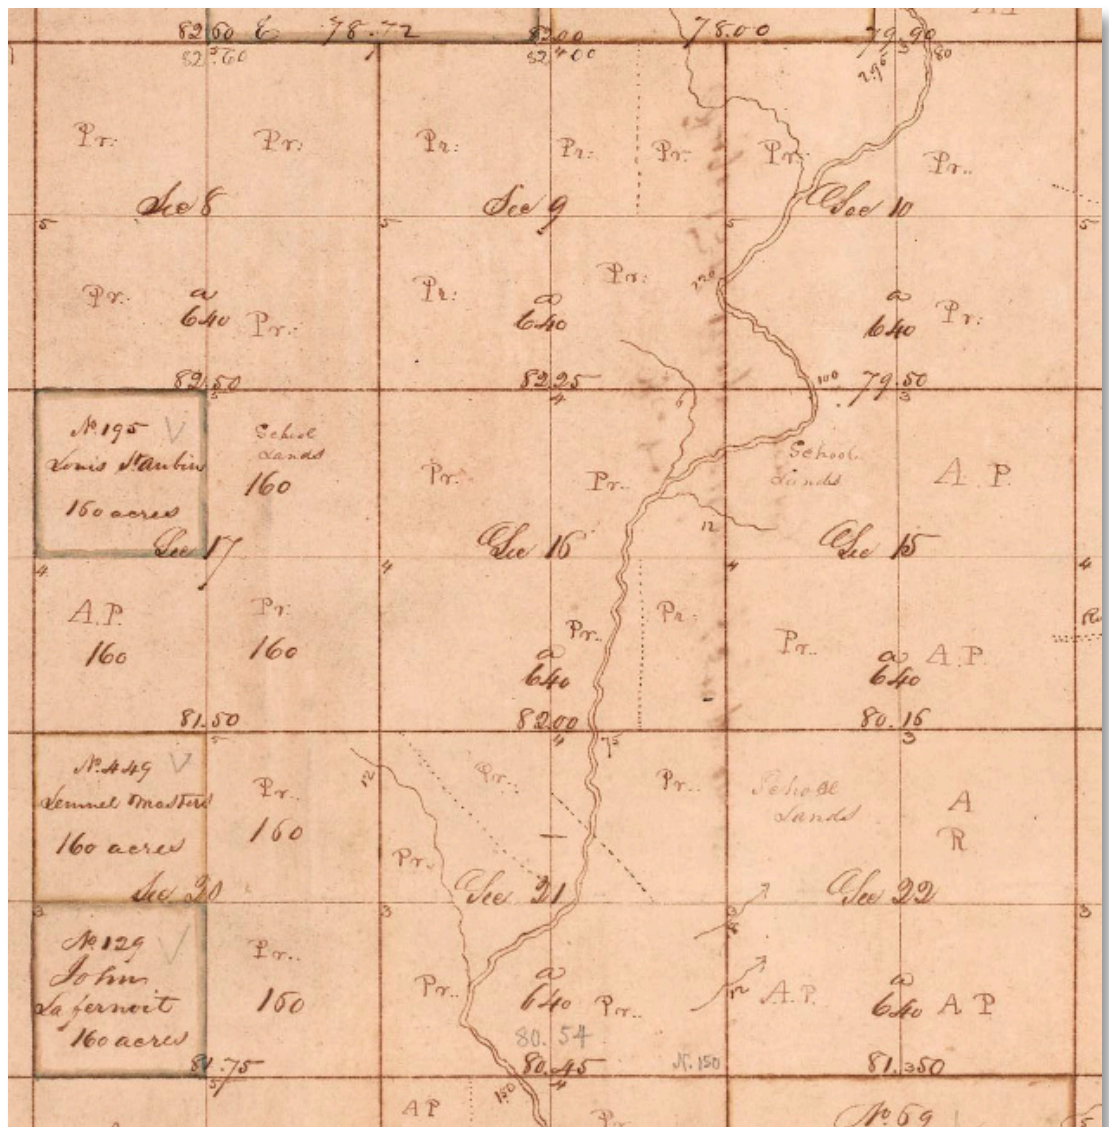 82.60 E 78.72 82.00 78.00 79.90
82.60 82.60 3 80
2.95
Pr: Pr: Pr: Pr: Pr: Pr: Pr..
Sec 8 Sec 9 Sec 10
5 5 5 5
Pr: Pr: Pr: Pr: Pr:
a a a
640 640 640
220
82.50 82.25 100 79.50
5 4 3
No. 195 V
Louis St. Aubin
160 acres
School
Lands
160
Pr. Pr..
6
12
School
Lands
A P.
Sec 17 Sec 16 Sec 15
4 4 4 4
A.P.
160
Pr:
160
Pr..
a
640
Pr:
Pr..
a
640
A P.
81.50 82.00 80.16
5 4 75 3
No. 449 V
Lemuel Masters
160 acres
Pr..
160
12
Pr..
Pr..
Pr..
School
Lands
A
R
Sec 20 Sec 21 Sec 22
3 3 3 3
8
No. 129 V
John
Lafernoit
160 acres
Pr..
160
Pr..
a
640
Pr..
12
A.P.
a
640
A P
80.54
81.75 80.45 N. 150 81.350
5 4
150
A P
Pr..
No. 69